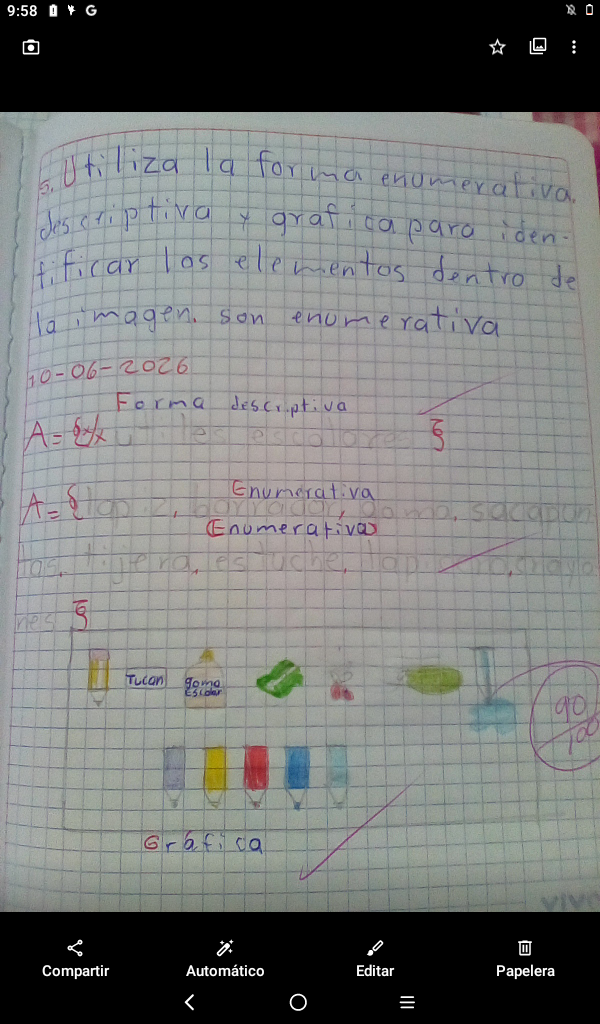 9:58
5. Utiliza la forma enumerativa.
descriptiva y grafica para iden-
tificar los elementos dentro de
la imagen. son enumerativa
10-06-2026
Forma descriptiva
A = {x/x utiles escolares }
Enumerativa
A = {lapiz, borrador, goma, sacapun
(Enumerativa)
tas, tijera, estuche, crayo
nes }
Tucan
goma
Escolar
90
100
Gráfica
Compartir
Automático
Editar
Papelera